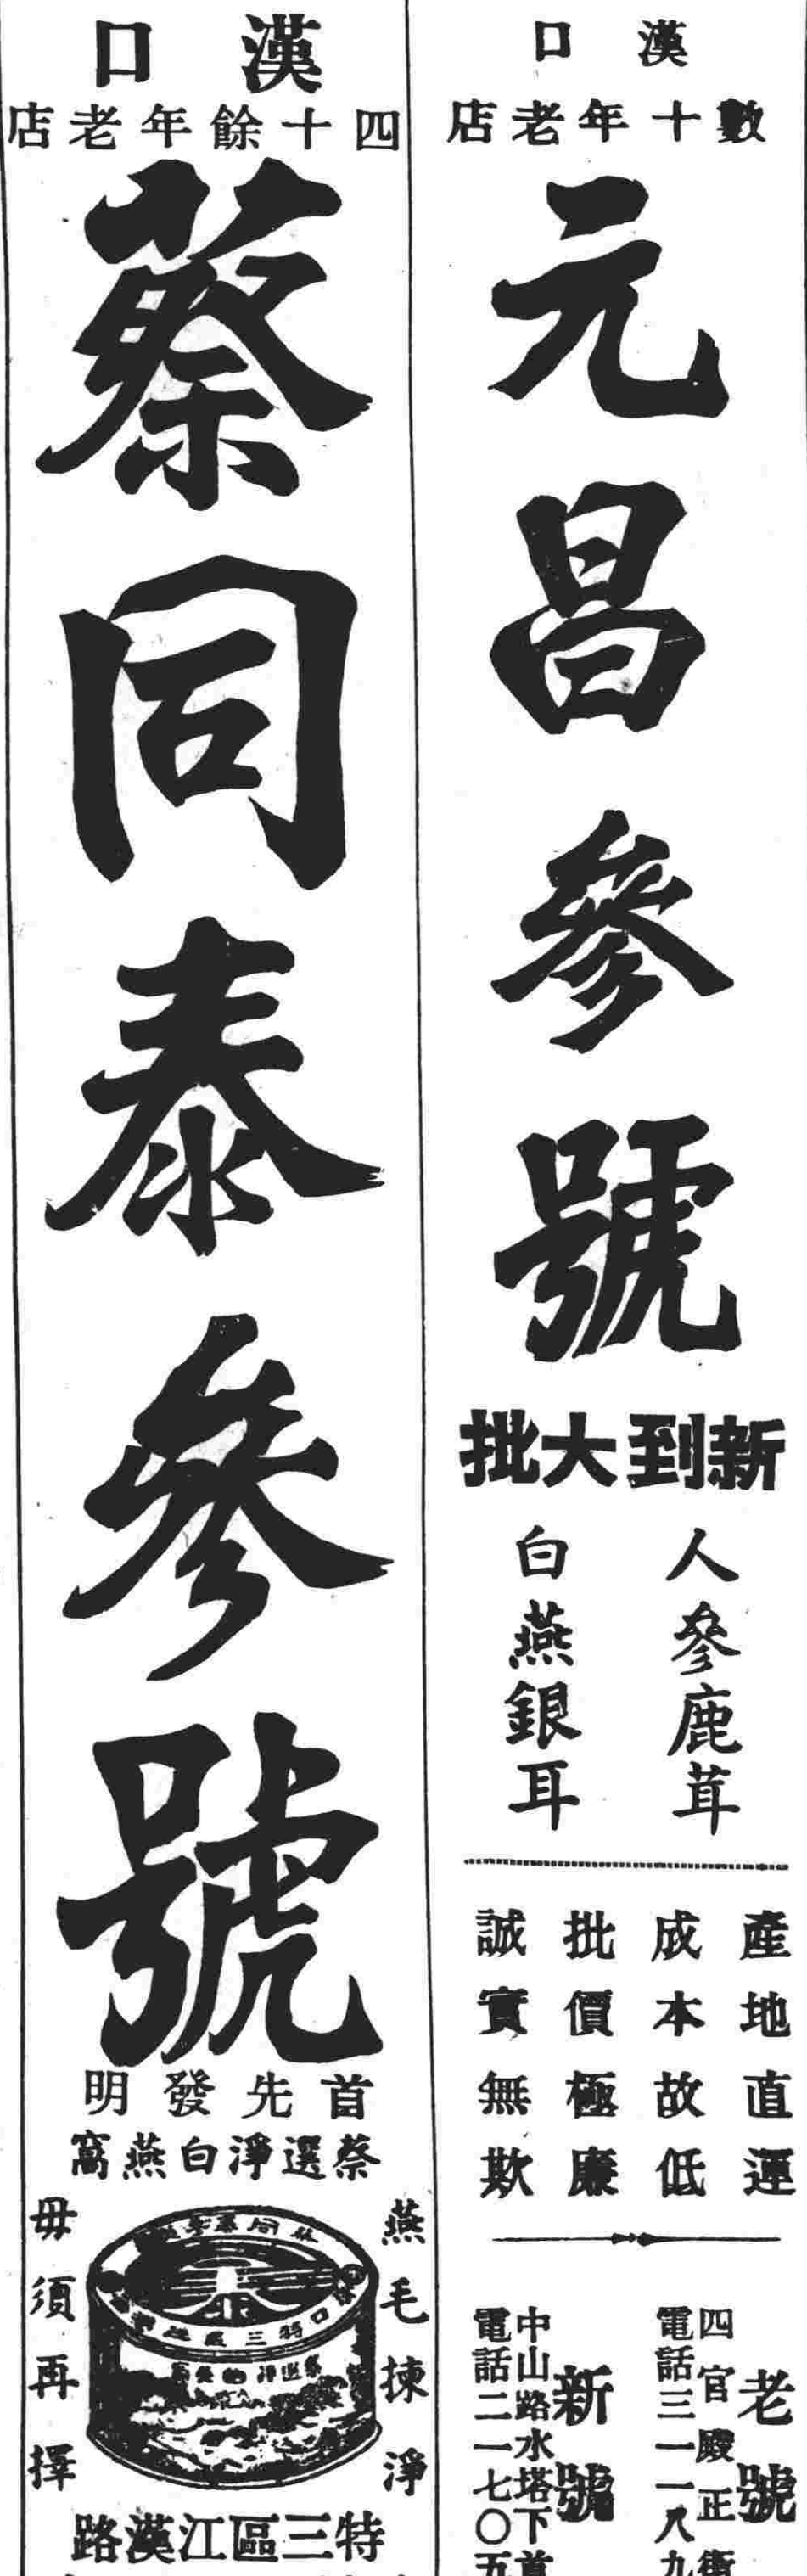 漢口
數十年老店
元昌參號
新到大批
人參鹿茸
白燕銀耳
產地直運
成本故低
批價極廉
誠實無欺
老號
四官殿正街
電話三一一八九
新號
中山路水塔下首
電話二一七〇五
漢口
四十餘年老店
蔡同泰參號
首先發明
蔡選淨白燕窩
燕毛揀淨
毋須再擇
特三區江漢路